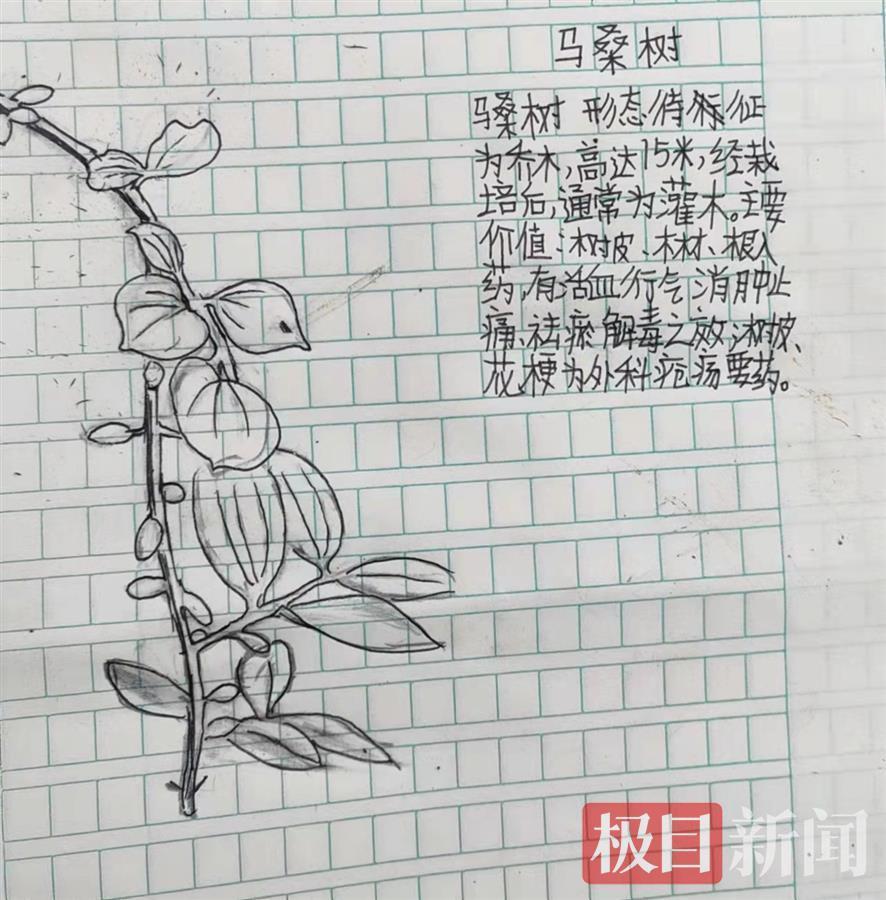 马桑树
马桑树 形态特征
为乔木,高达15米,经栽
培后,通常为灌木。主要
价值:树皮、木材、根入
药,有活血行气消肿止
痛、祛瘀解毒之效;树皮、
花梗为外科疮疡要药。
极目新闻